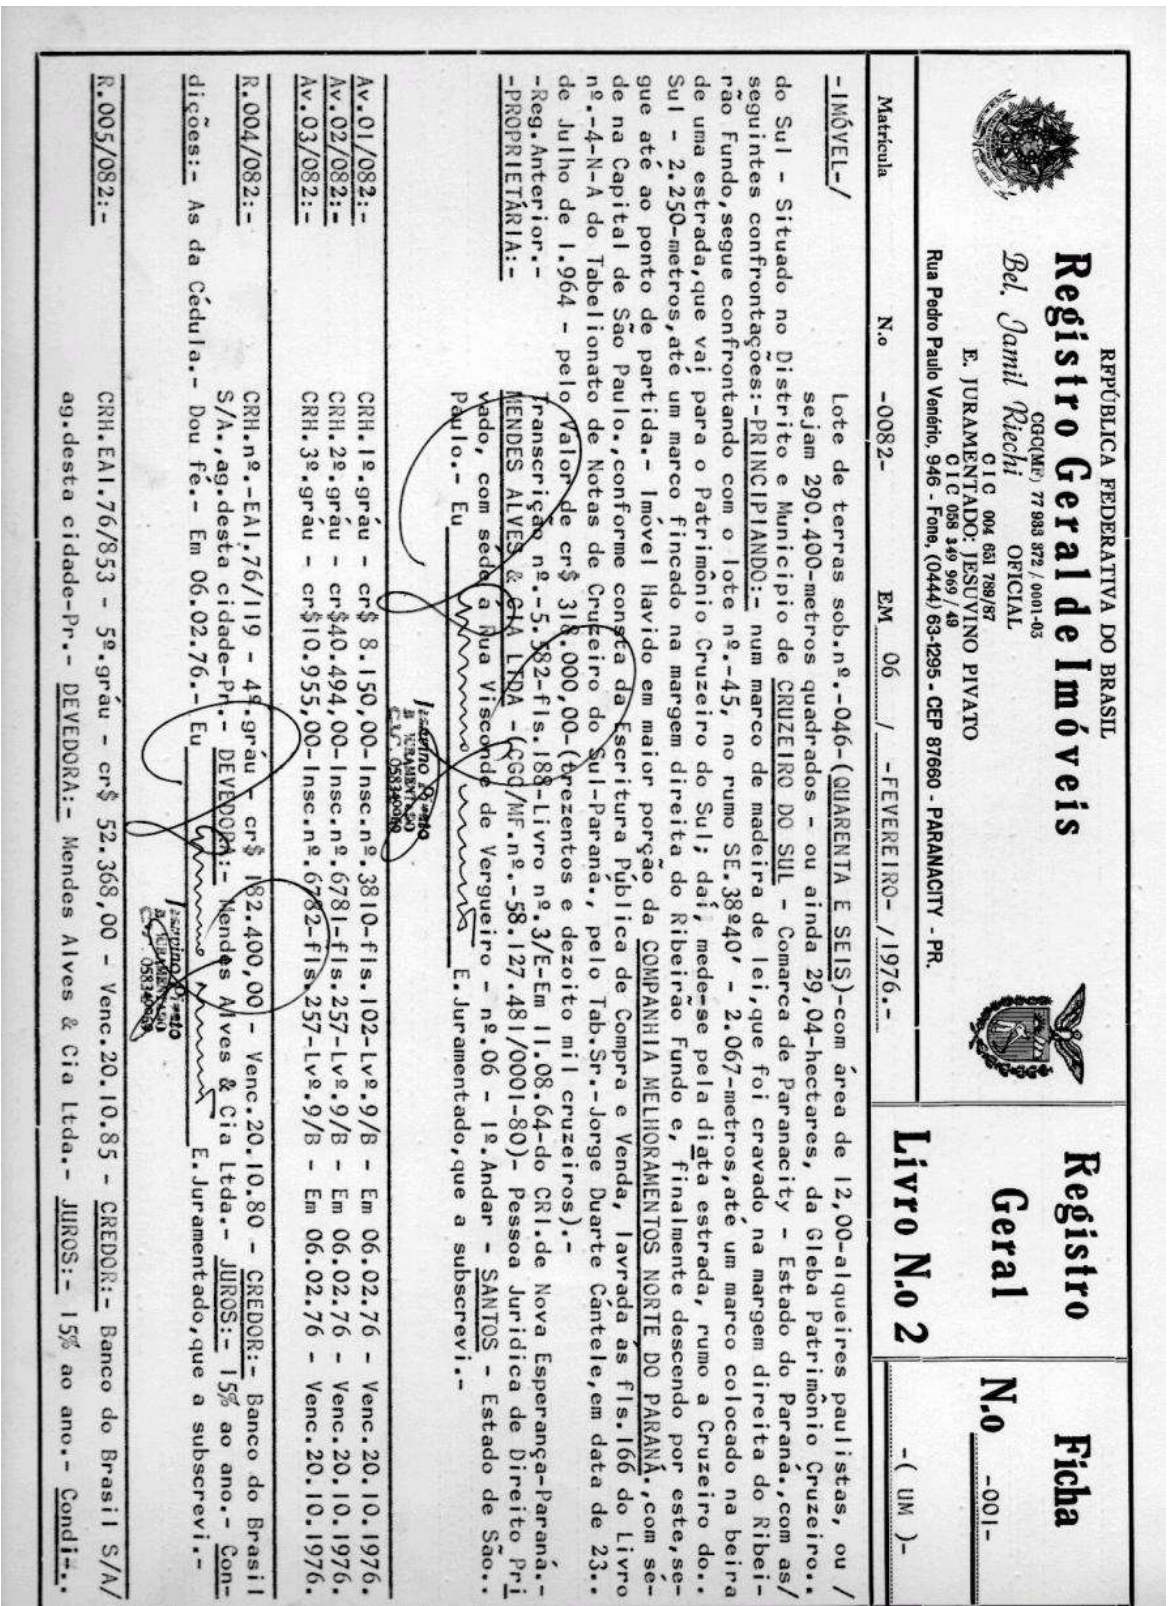 REPÚBLICA FEDERATIVA DO BRASIL
Registro Geral de Imóveis
CGC(MF) 77 933 372 / 0001-03
Bel. Jamil Riechi OFICIAL
CIC 004 651 789/87
E. JURAMENTADO: JESUVINO PIVATO
CIC 058 349 969 / 49
Rua Pedro Paulo Venério, 946 - Fone, (0444) 63-1295 - CEP 87660 - PARANACITY - PR.
Registro
Geral
Livro N.o 2
Ficha
N.o -001-
-( UM )-
Matrícula N.o -0082- EM 06 / -FEVEREIRO- / 1976.-
-IMÓVEL-/ Lote de terras sob.nº.-046-(QUARENTA E SEIS)-com área de 12,00-alqueires paulistas, ou /
sejam 290.400-metros quadrados - ou ainda 29,04-hectares, da Gleba Patrimônio Cruzeiro..
do Sul - Situado no Distrito e Municipio de CRUZEIRO DO SUL - Comarca de Paranacity - Estado do Paraná.,com as/
seguintes confrontações:-PRINCIPIANDO:- num marco de madeira de lei,que foi cravado na margem direita do Ribei-
rão Fundo,segue confrontando com o lote nº.-45, no rumo SE.38º40' - 2.067-metros,até um marco colocado na beira
de uma estrada,que vai para o Patrimônio Cruzeiro do Sul; daí, mede-se pela diata estrada, rumo a Cruzeiro do..
Sul - 2.250-metros,até um marco fincado na margem direita do Ribeirão Fundo e, finalmente descendo por este,se-
gue até ao ponto de partida.- Imóvel Havido em maior porção da COMPANHIA MELHORAMENTOS NORTE DO PARANÁ.,com sé-
de na Capital de São Paulo.,conforme consta da Escritura Pública de Compra e Venda, lavrada às fls.166 do Livro
nº.-4-N-A do Tabelionato de Notas de Cruzeiro do Sul-Paraná., pelo Tab.Sr.-Jorge Duarte Cántele,em data de 23..
de Julho de 1.964 - pelo Valor de cr$ 318.000,00-(trezentos e dezoito mil cruzeiros).-
-Reg.Anterior.- Transcrição nº.-5.582-fls.188-Livro nº.3/E-Em 11.08.64-do CRI.de Nova Esperança-Paraná.-
-PROPRIETÁRIA:- MENDES ALVES & CIA LTDA -(CGC/MF.nº.-58.127.481/0001-80)- Pessoa Juridica de Direito Pri
vado, com séde à Rua Visconde de Vergueiro - nº.06 - 1º.Andar - SANTOS - Estado de São..
Paulo.- Eu E.Juramentado,que a subscrevi.-
JURAMENTADO
Av.01/082:- CRH.1º.gráu - cr$ 8.150,00-Insc.nº.3810-fls.102-Lvº.9/B - Em 06.02.76 - Venc.20.10.1976.
Av.02/082:- CRH.2º.gráu - cr$40.494,00-Insc.nº.6781-fls.257-Lvº.9/B - Em 06.02.76 - Venc.20.10.1976.
Av.03/082:- CRH.3º.gráu - cr$10.955,00-Insc.nº.6782-fls.257-Lvº.9/B - Em 06.02.76 - Venc.20.10.1976.
R.004/082:- CRH.nº.-EAI.76/119 - 4º.gráu - cr$ 182.400,00 - Venc.20.10.80 - CREDOR:- Banco do Brasil
S/A.,ag.desta cidade-Pr.- DEVEDORA:- Mendes Alves & Cia Ltda.- JUROS:- 15% ao ano.- Con-
dições:- As da Cédula.- Dou fé.- Em 06.02.76.- Eu E.Juramentado,que a subscrevi.-
JURAMENTADO
R.005/082:- CRH.EAI.76/853 - 5º.gráu - cr$ 52.368,00 - Venc.20.10.85 - CREDOR:- Banco do Brasil S/A/
ag.desta cidade-Pr.- DEVEDORA:- Mendes Alves & Cia Ltda.- JUROS:- 15% ao ano.- Condi-..